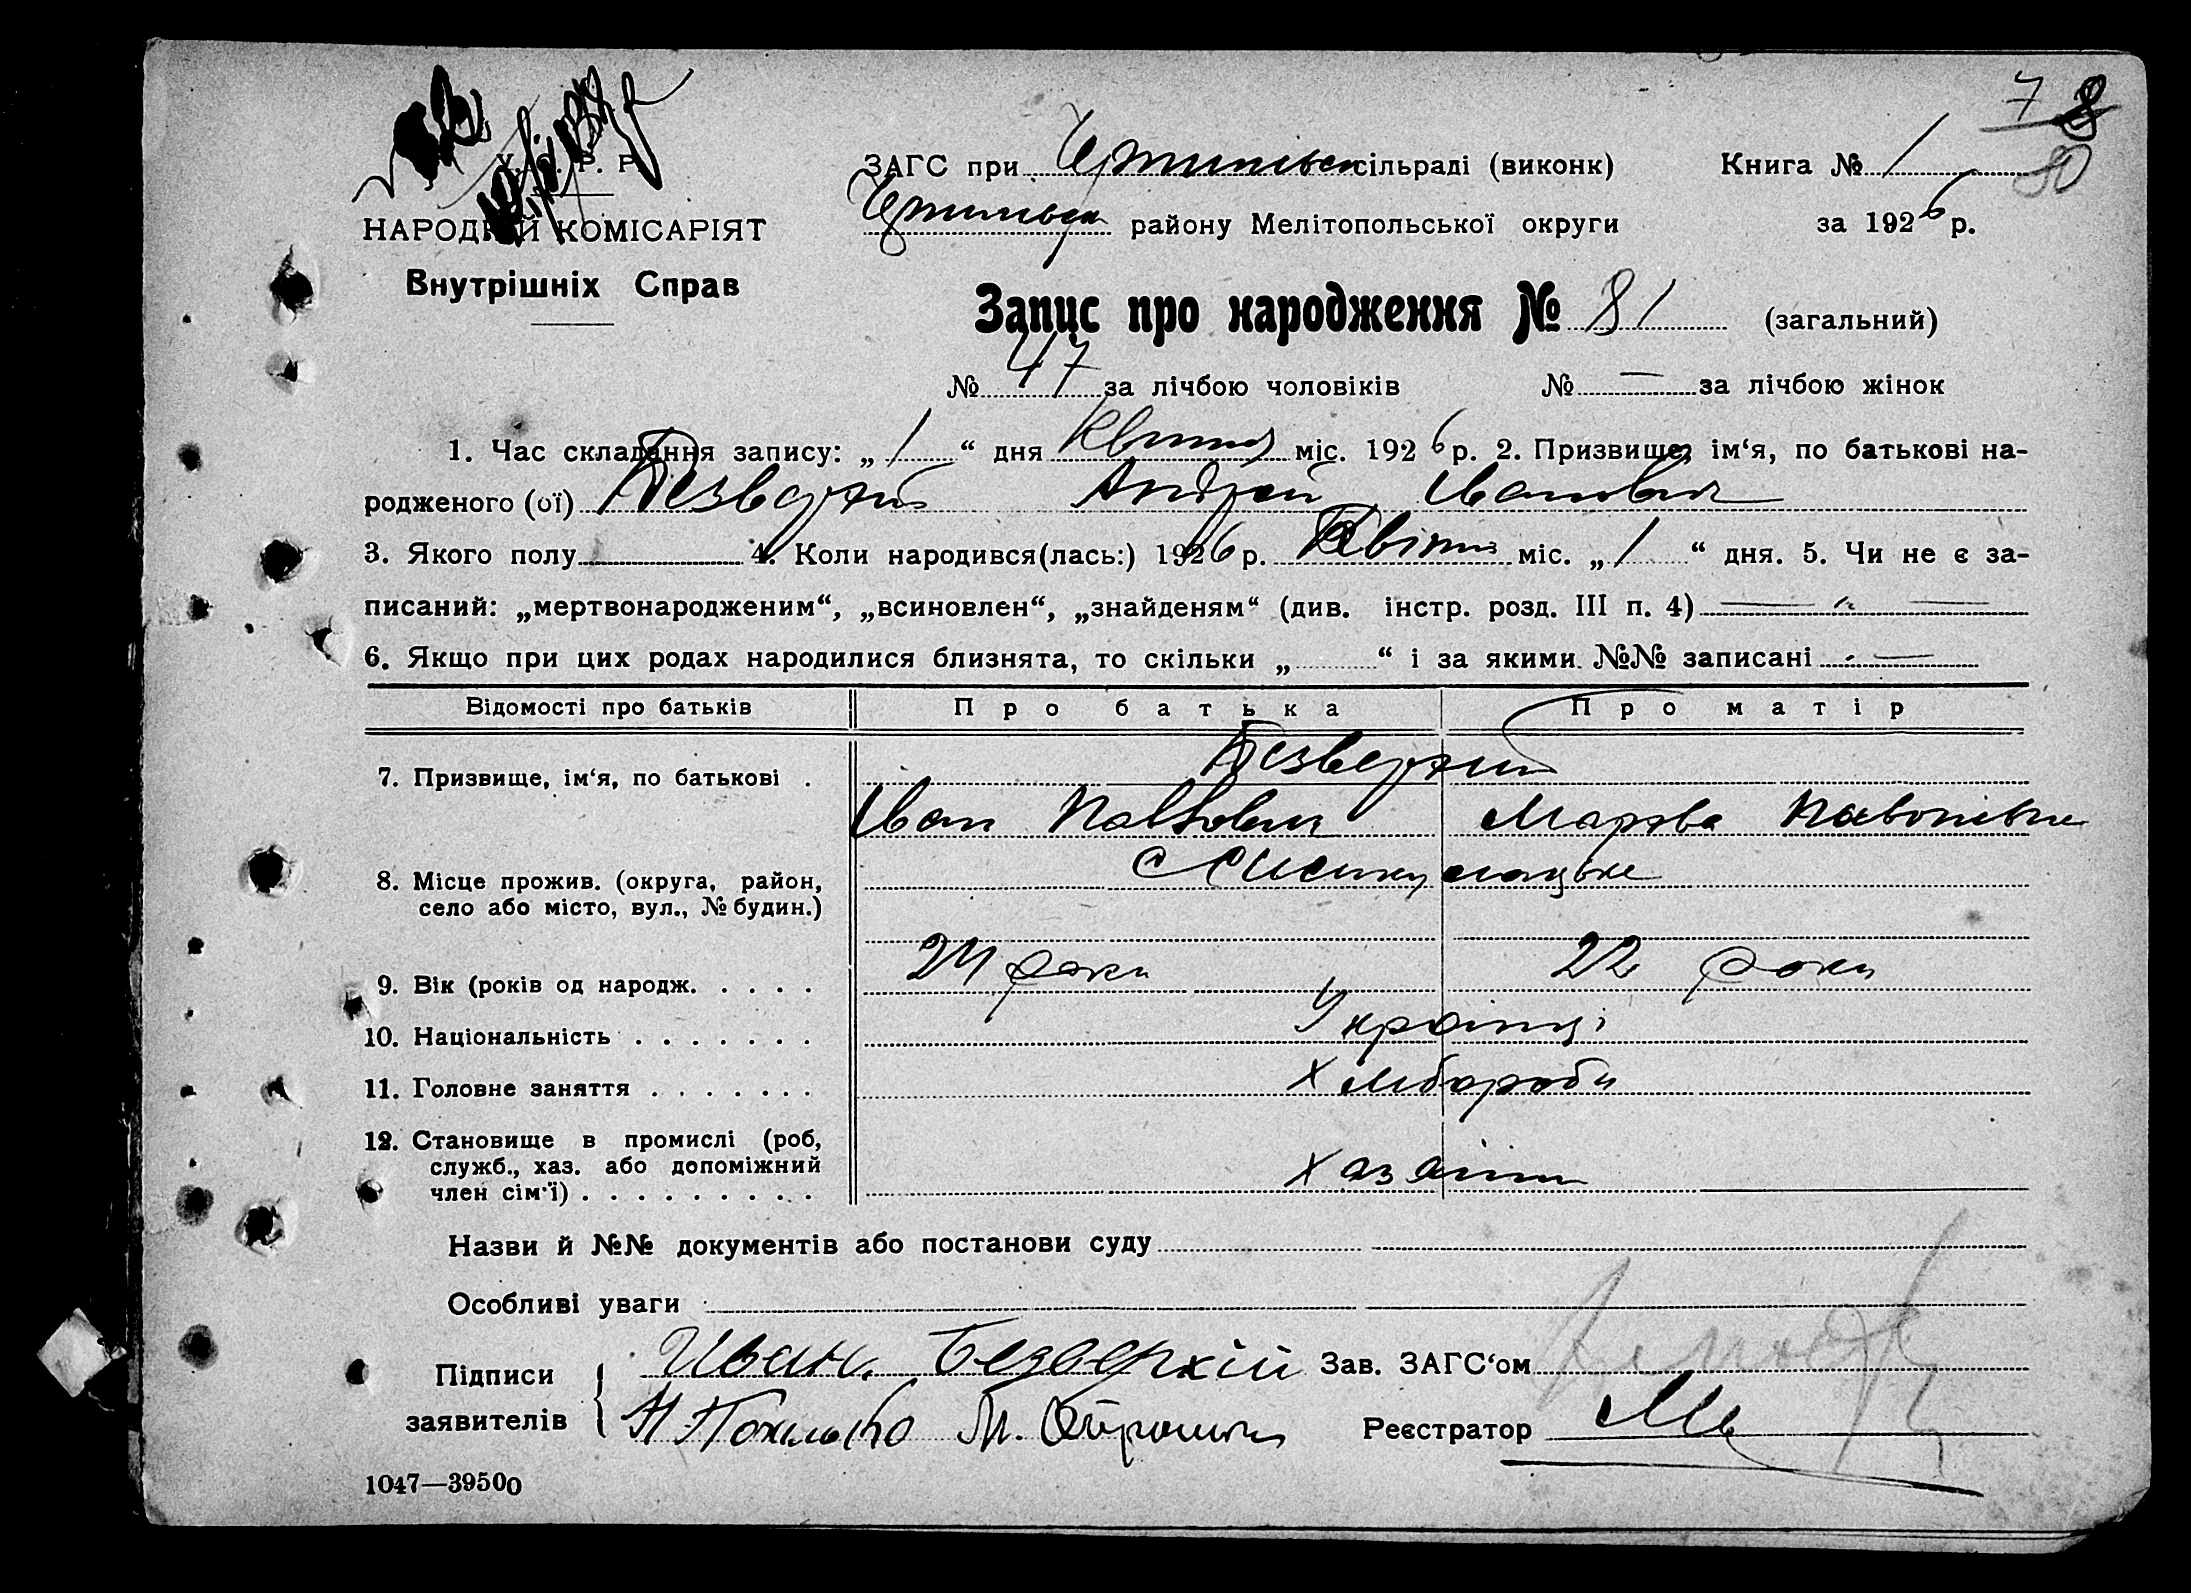 7 8
50
У. С. Р. Р.
НАРОДНІЙ КОМІСАРІЯТ
Внутрішніх Справ
ЗАГС при сільраді (виконк) Книга № 1
району Мелітопольської округи за 1926 р.
Запис про народження № 81 (загальний)
№ 47 за лічбою чоловіків № — за лічбою жінок
1. Час складання запису: „1“ дня Квітня міс. 1926 р. 2. Призвище, ім‘я, по батькові на-
родженого (ої) Безверхий Андрій Іванович
3. Якого полу 4. Коли народився(лась:) 1926 р. Квітня міс. „1“ дня. 5. Чи не є за-
писаний: „мертвонародженим“, „всиновлен“, „знайденям“ (див. інстр. розд. III п. 4) — „ —
6. Якщо при цих родах народилися близнята, то скільки „ “ і за якими №№ записані —
Відомості про батьків Про батька Про матір
7. Призвище, ім‘я, по батькові . Безверхий
Іван Павлович Марфа
8. Місце прожив. (округа, район,
село або місто, вул., № будин.)
9. Вік (років од народж. . . . . 24 роки 22 роки
10. Національність . . . . . . . Українці
11. Головне заняття . . . . . . . Хлібороби
12. Становище в промислі (роб,
служб., хаз. або допоміжний
член сім‘ї) . . . . . . . . . Хазяїни
Назви й №№ документів або постанови суду
Особливі уваги
Підписи Иван Безверхій Зав. ЗАГС‘ом
заявителів М. Реєстратор
1047—39500